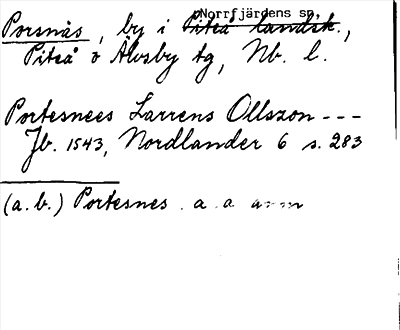 pNorrfjärdens sn,
Porsnäs, by i Piteå landsk.,
Piteå o Älvsby tg, Nb. l.
Portesnees Larrens Ollszon ---
Jb. 1543, Nordlander 6 s. 283
(a.b.) Portesnes . a . a